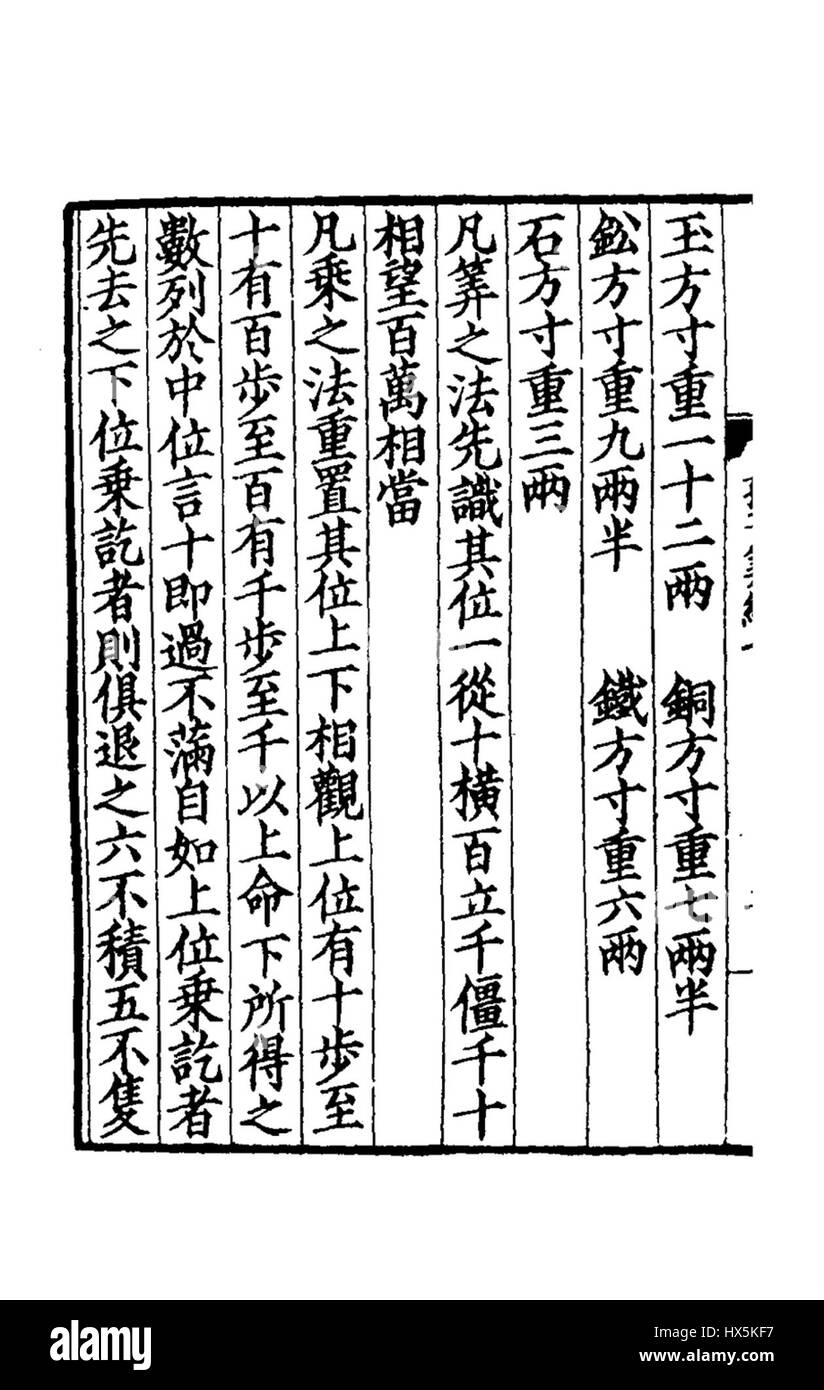 玉方寸重一十二兩　銅方寸重七兩半
鈆方寸重九兩半　鐵方寸重六兩
石方寸重三兩
凡筭之法先識其位一從十橫百立千僵千十
相望百萬相當
凡乗之法重置其位上下相觀上位有十步至
十有百步至百有千步至千以上命下所得之
數列於中位言十即過不滿自如上位乗訖者
先去之下位乗訖者則俱退之六不積五不隻
alamy
alamy
Image ID: HX5KF7
www.alamy.com